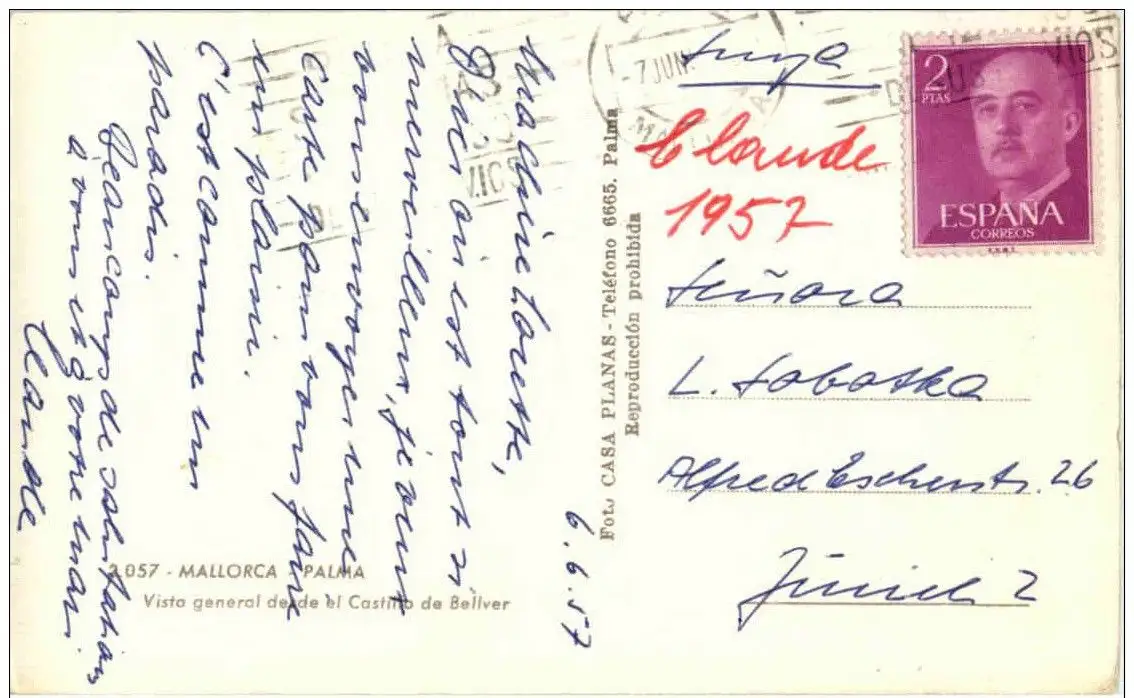 6.6.57
Ma chère Lorette,
Ici où est tout si
merveilleux, je veux
vous envoyer une
carte pour vous faire
un plaisir.
C'est comme un
paradis.
Beaucoup de salutations
à vous et à votre mari
Claude
3.057 - MALLORCA - PALMA
Vista general desde el Castillo de Bellver
Foto CASA PLANAS - Teléfono 6665. Palma
Reproducción prohibida
-7 JUN.
2
PTAS
ESPAÑA
CORREOS
F.N.M.T.
VIOS
VIOS
Suiza
Claude
1957
Señora
L. Sobotka
Alfred Escherstr. 26
Zürich 2